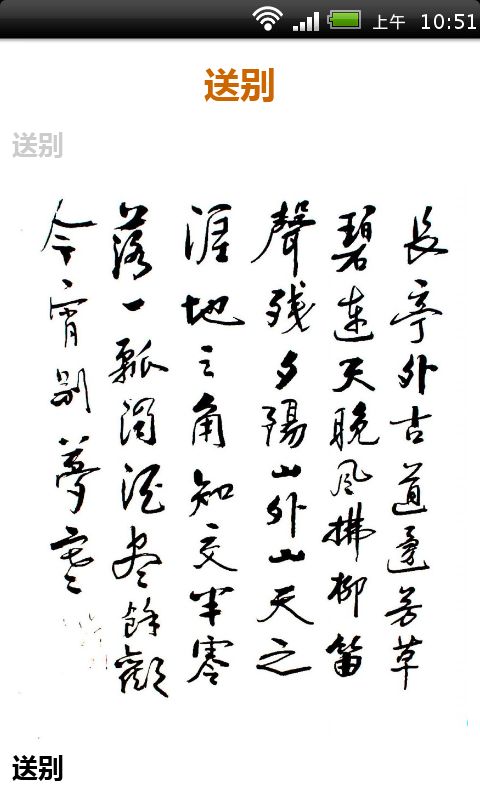 上午 10:51
送别
送别
长亭外古道邊芳草
碧連天晚风拂柳笛
聲残夕陽山外山天之
涯地之角知交半零
落一瓢濁酒尽餘歡
今宵别夢寒
送别